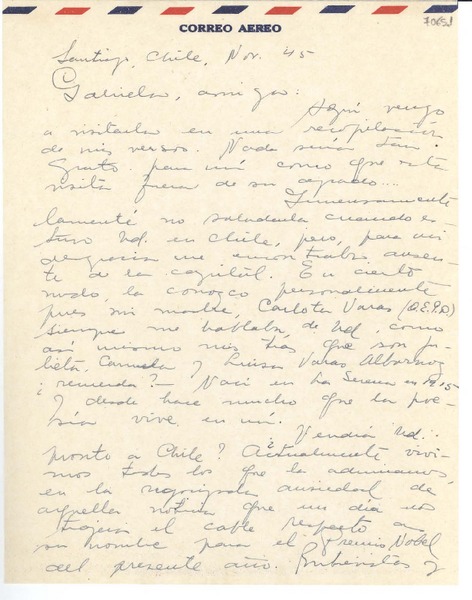 CORREO AEREO
Santiago, Chile, Nov. 45
Gabriela, amiga:
Aquí vengo
a visitarla en una recopilación
de mis versos. Nada sería tan
grato para mí como que esta
visita fuera de su agrado....
Inmensamente
lamenté no saludarla cuando es-
tuvo Ud. en Chile, pero, para mi
desgracia me encontraba ausen-
te de la capital. En cierto
modo, la conozco personalmente
pues mi madre, Carlota Varas (Q.E.P.D)
siempre me hablaba de Ud, como
así mismo mis tías que son Ju-
lieta, Carmela y Luisa Varas Albornoz
¿remenda? - Nací en La Serena en 1915
y desde hace mucho que la poe-
sía vive en mí.
¿Vendrá Ud.
pronto a Chile? Actualmente vivi-
mos todos los que la admiramos,
en la regocijada ansiedad de
aquella noticia que un día nos
trajera el cable respecto a
su nombre para el Premio Nobel
del presente año. Entrevistas y